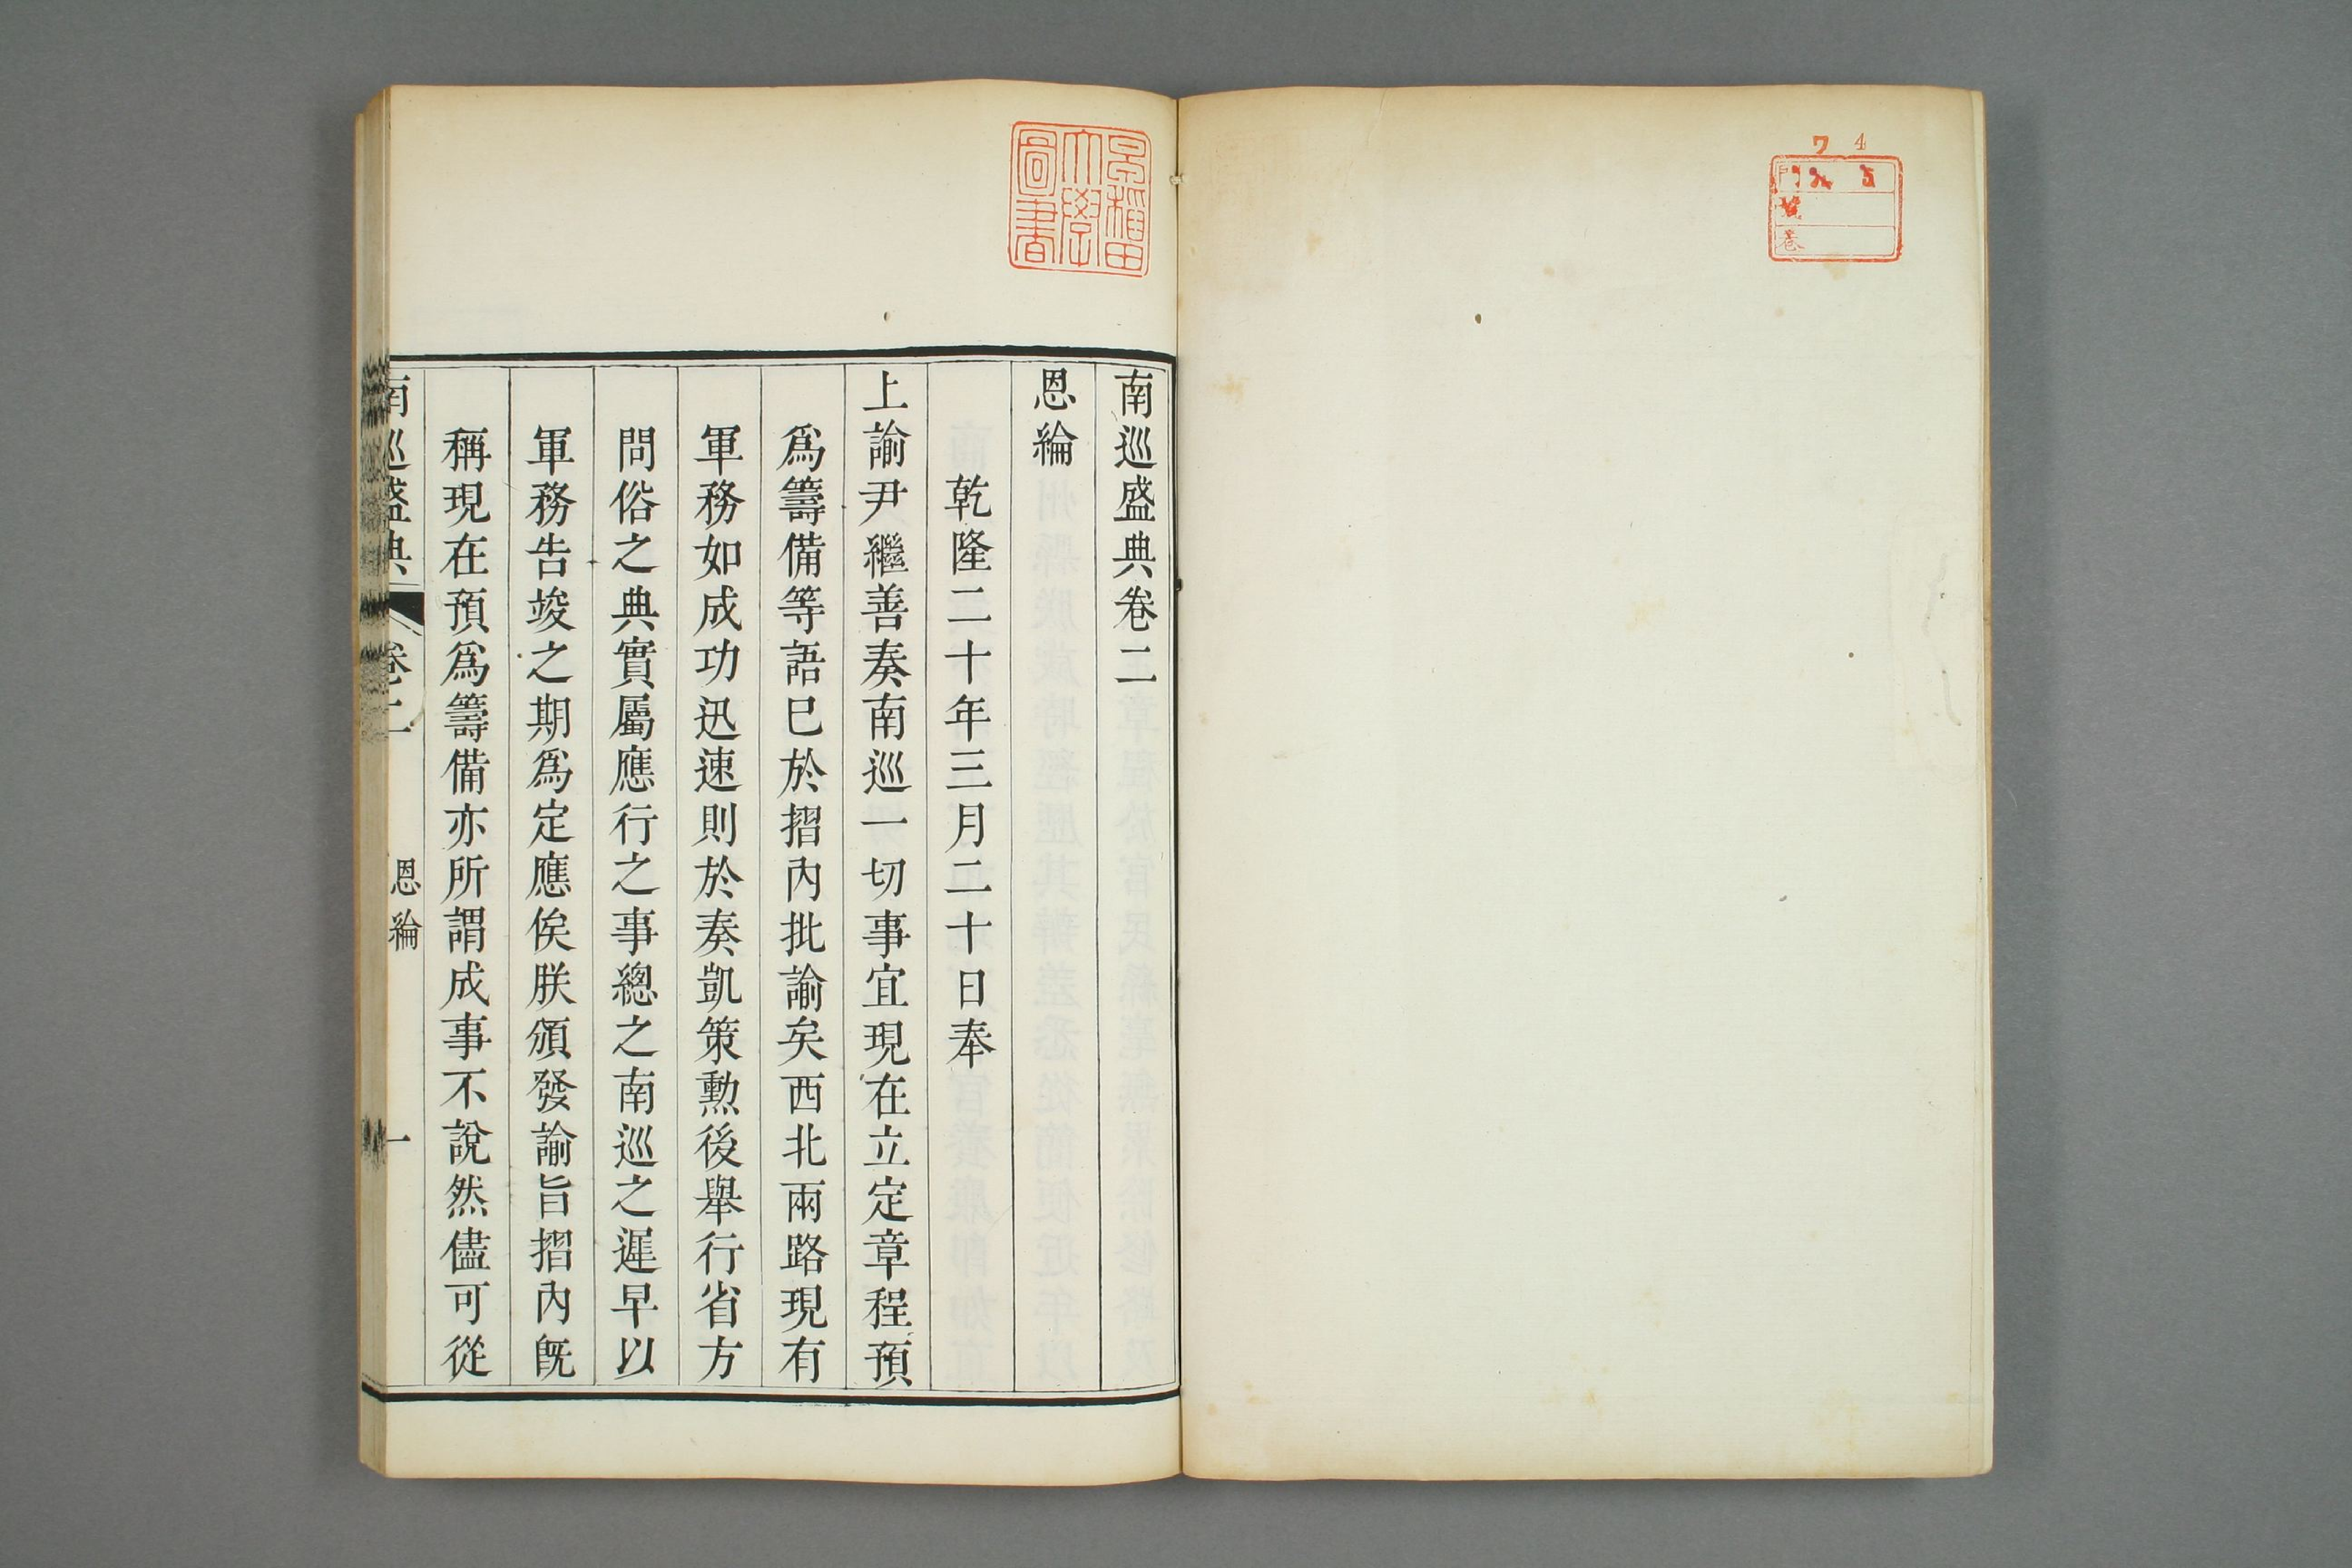 南巡盛典卷二
恩綸
乾隆二十年三月二十日奉
上諭尹繼善奏南巡一切事宜現在立定章程預
爲籌備等語已於摺內批諭矣西北兩路現有
軍務如成功迅速則於奏凱策勳後舉行省方
問俗之典實屬應行之事總之南巡之遲早以
軍務告竣之期爲定應俟朕頒發諭旨摺內旣
稱現在預爲籌備亦所謂成事不說然儘可從
南巡盛典 卷二 恩綸 一
早稻田大學圖書
7 4
門
號
卷